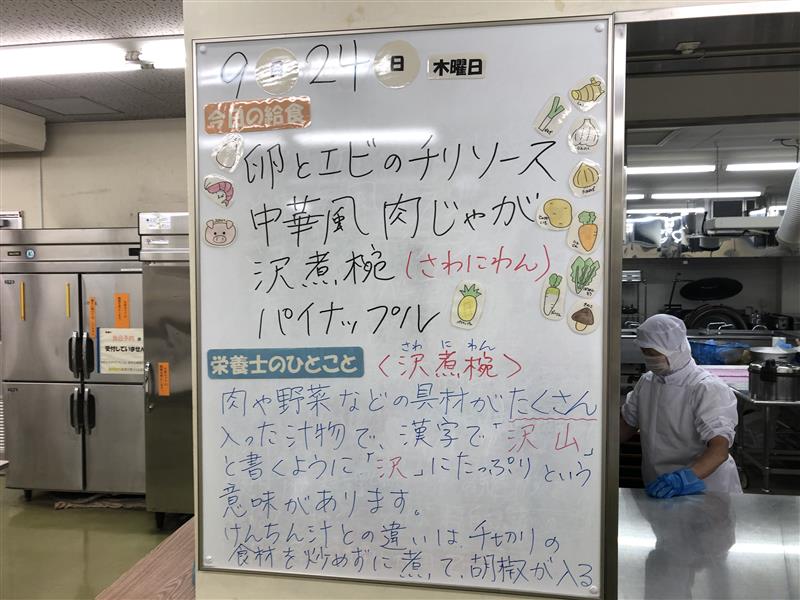 9月24日 木曜日
今日の給食
卵とエビのチリソース
中華風肉じゃが
沢煮椀(さわにわん)
パイナップル
栄養士のひとこと
さわ に わん
<沢煮椀>
肉や野菜などの具材がたくさん
入った汁物で、漢字で「沢山」
と書くように「沢」にたっぷりという
意味があります。
けんちん汁との違いは、千切りの
食材を炒めずに煮て、胡椒が入る
受付していません